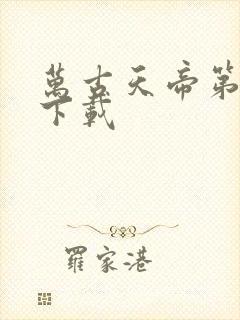 萬古天帝第
下載
羅家港